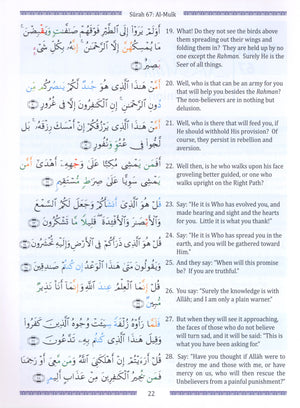 Sūrah 67: Al-Mulk
أَوَلَمْ يَرَوْا۟ إِلَى ٱلطَّيْرِ فَوْقَهُمْ صَٰٓفَّٰتٍ وَيَقْبِضْنَ ۚ
مَا يُمْسِكُهُنَّ إِلَّا ٱلرَّحْمَٰنُ ۚ إِنَّهُۥ بِكُلِّ شَىْءٍۭ
بَصِيرٌ
19. What! Do they not see the birds above
them spreading out their wings and
folding them in? They are held up by no
one except the Rahman. Surely He is the
Seer of all things.
أَمَّنْ هَٰذَا ٱلَّذِى هُوَ جُندٌ لَّكُمْ يَنصُرُكُم مِّن
دُونِ ٱلرَّحْمَٰنِ ۚ إِنِ ٱلْكَٰفِرُونَ إِلَّا فِى غُرُورٍ
20. Well, who is that can be an army for you
that will help you besides the Rahman?
The non-believers are in nothing but
delusion.
أَمَّنْ هَٰذَا ٱلَّذِى يَرْزُقُكُمْ إِنْ أَمْسَكَ رِزْقَهُۥ ۚ بَل
لَّجُّوا۟ فِى عُتُوٍّ وَنُفُورٍ
21. Well, who is there that will feed you, if
He should withhold His provision? Of
course, they persist in rebellion and
aversion.
أَفَمَن يَمْشِى مُكِبًّا عَلَىٰ وَجْهِهِۦٓ أَهْدَىٰٓ أَمَّن
يَمْشِى سَوِيًّا عَلَىٰ صِرَٰطٍ مُّسْتَقِيمٍ
22. Well then, is he who walks upon his face
groveling better guided, or one who
walks upright on the Right Path?
قُلْ هُوَ ٱلَّذِىٓ أَنشَأَكُمْ وَجَعَلَ لَكُمُ ٱلسَّمْعَ
وَٱلْأَبْصَٰرَ وَٱلْأَفْـِٔدَةَ ۖ قَلِيلًا مَّا تَشْكُرُونَ
23. Say: "He it is Who has evolved you, and
made hearing and sight and the hearts
for you. Little it is what you thank!"
قُلْ هُوَ ٱلَّذِى ذَرَأَكُمْ فِى ٱلْأَرْضِ وَإِلَيْهِ تُحْشَرُونَ
24. Say: "He it is Who has spread you in the
earth, and you will be gathered toward
Him."
وَيَقُولُونَ مَتَىٰ هَٰذَا ٱلْوَعْدُ إِن كُنتُمْ صَٰدِقِينَ
25. And they say: "When will this promise
be? If you are truthful."
قُلْ إِنَّمَا ٱلْعِلْمُ عِندَ ٱللَّهِ وَإِنَّمَآ أَنَا۠ نَذِيرٌ
مُّبِينٌ
26. You say: "Surely the knowledge is with
Allāh; and I am only a plain warner."
فَلَمَّا رَأَوْهُ زُلْفَةً سِيٓـَٔتْ وُجُوهُ ٱلَّذِينَ كَفَرُوا۟
وَقِيلَ هَٰذَا ٱلَّذِى كُنتُم بِهِۦ تَدَّعُونَ
27. But when they will see it approaching,
the faces of those who do not believe
will turn sad, and it will be said: "This is
what you have been asking for."
قُلْ أَرَءَيْتُمْ إِنْ أَهْلَكَنِىَ ٱللَّهُ وَمَن مَّعِىَ أَوْ رَحِمَنَا
فَمَن يُجِيرُ ٱلْكَٰفِرِينَ مِنْ عَذَابٍ أَلِيمٍ
28. Say: "Have you thought if Allāh were to
destroy me and those with me, or have
mercy on us, who will then rescue the
Unbelievers from a painful punishment?"
22